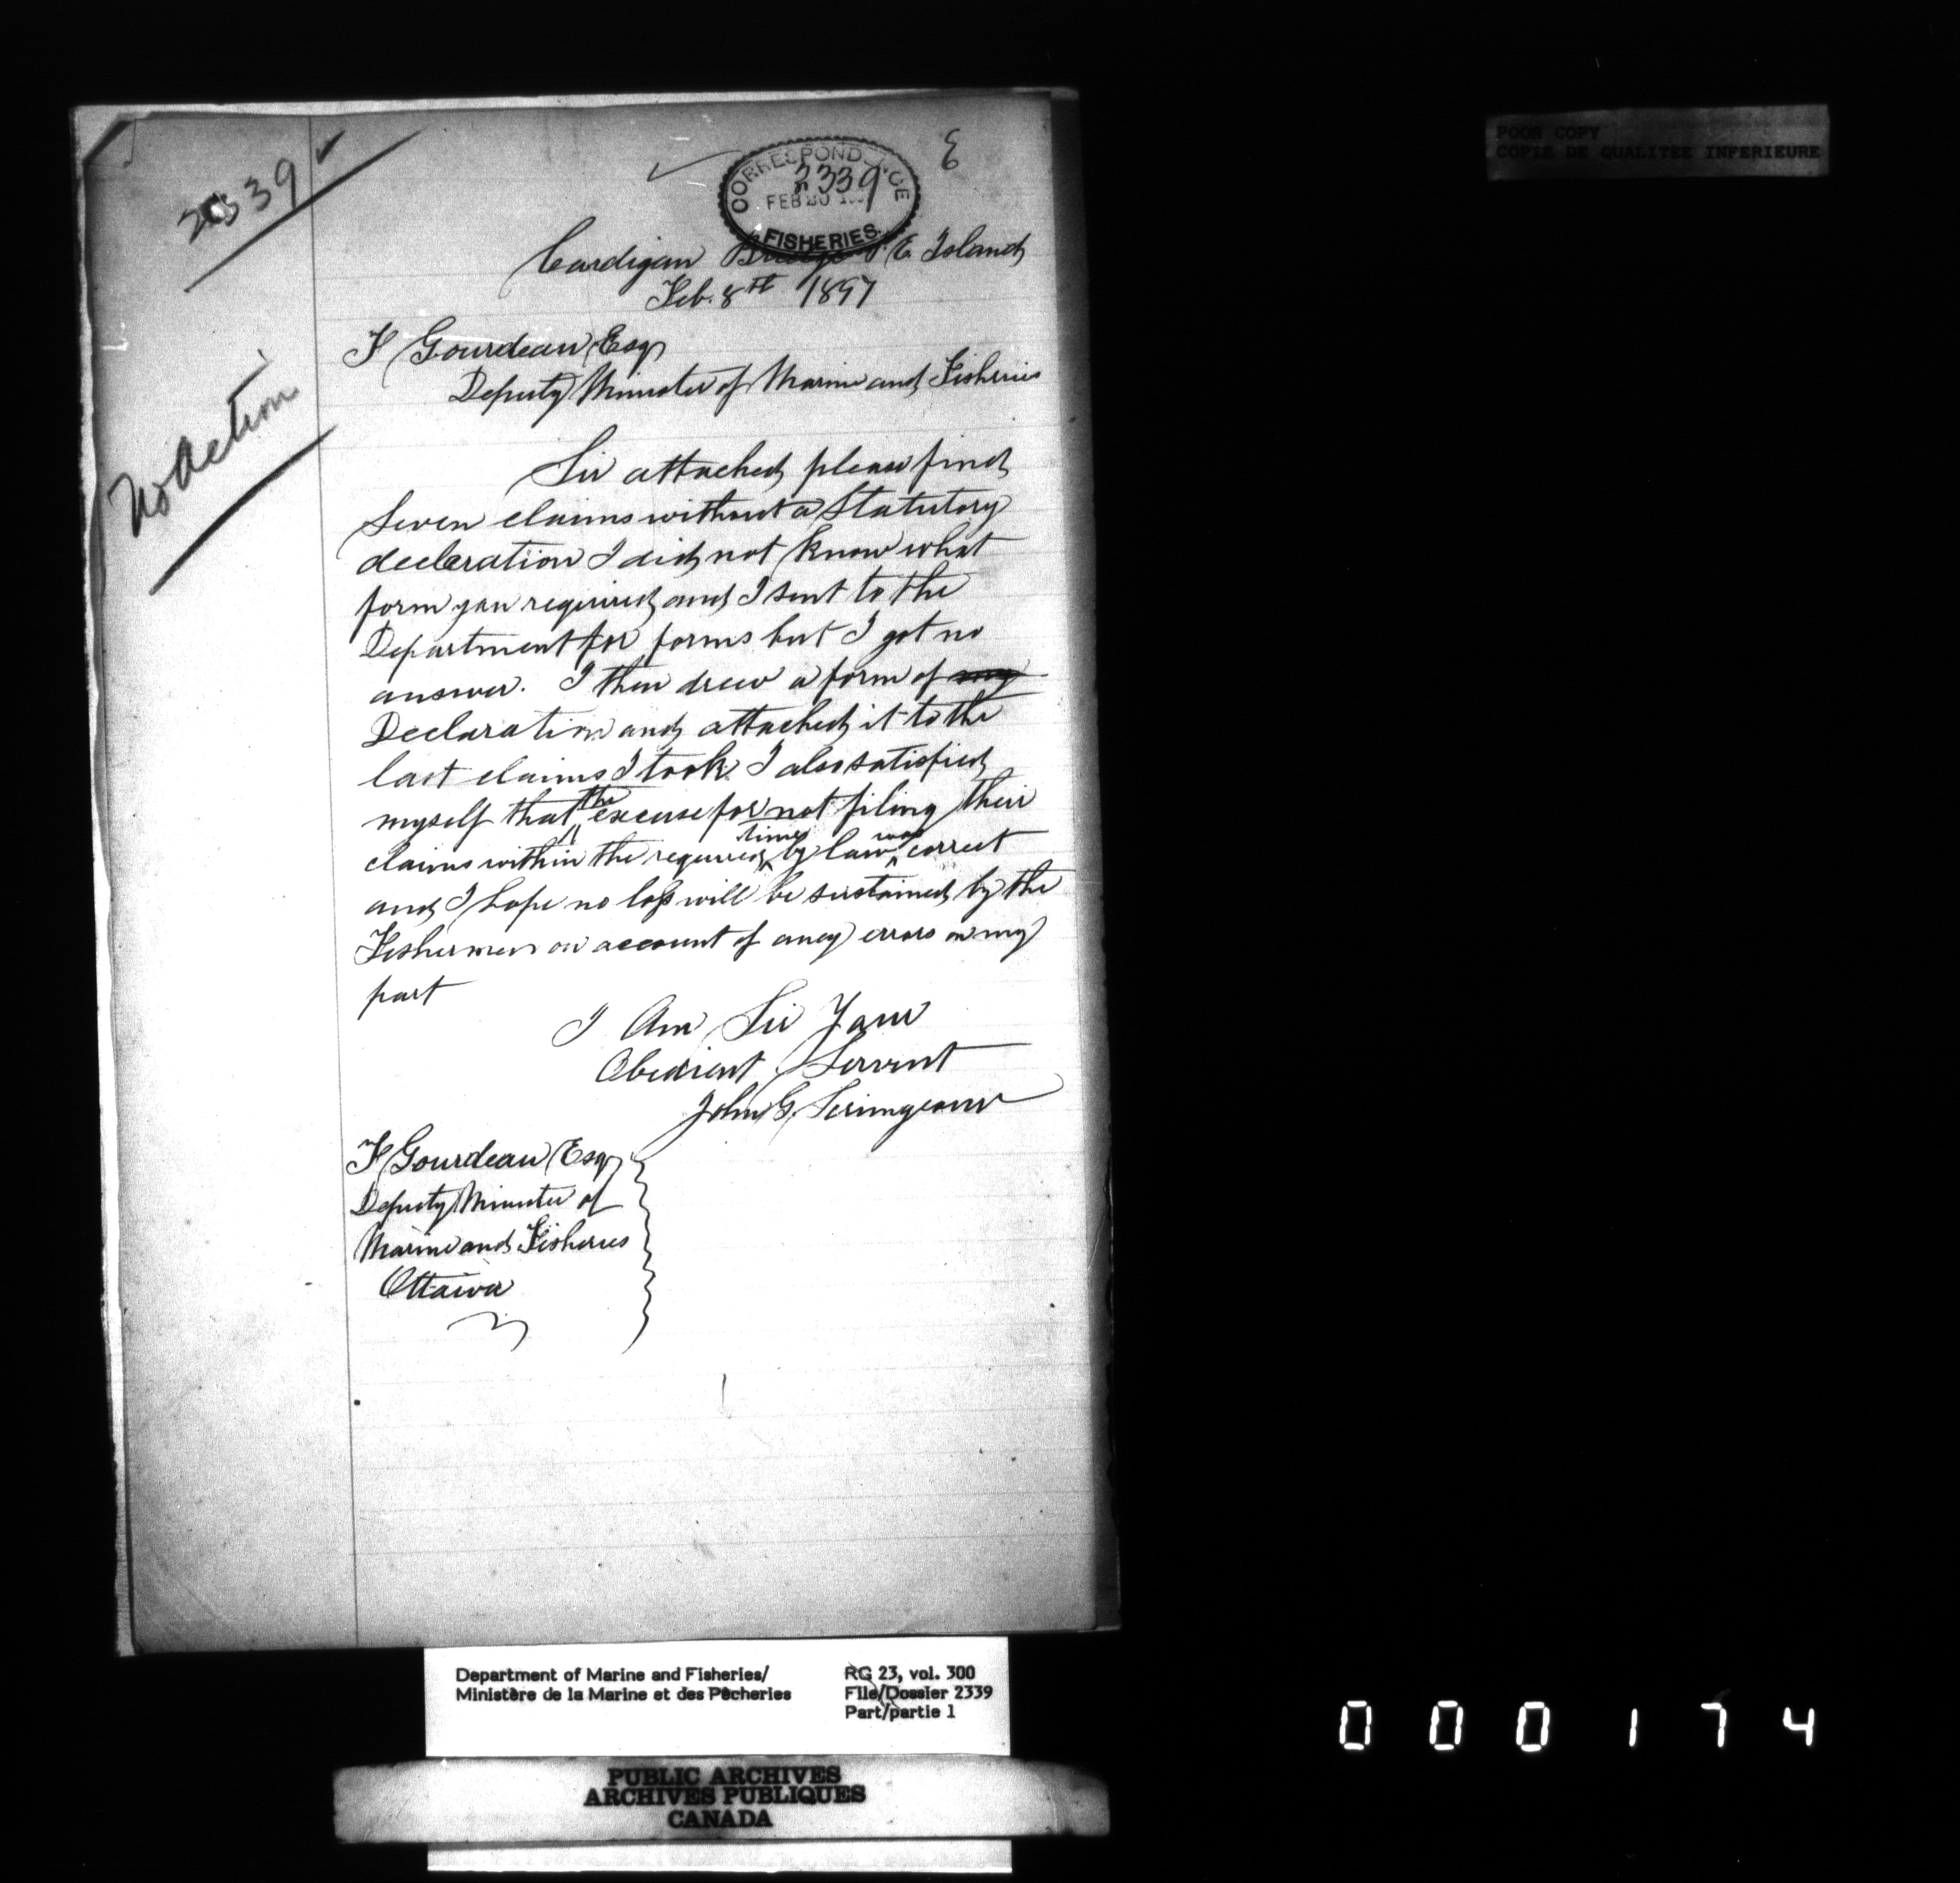 2339
E
CORRESPONDENCE
2339
FEB 20 189
FISHERIES
Cardigan Bridge P. E Island
Feb. 8th 1897
F Gourdeau Esq
Deputy Minister of Marine and Fisheries
No Action
Sir attached please find
Seven claims without a Statutory
decleration I did not know what
form you required and I sent to the
Department for forms but I got no
answer. I then drew a form of
Declaration and attached it to the
last claims I took. I also satisfied
myself that the excuse for not filing their
claims within the required time by law was correct
and I hope no loss will be sustained by the
Fishermen on account of aney errors on my
part
I Am Sir Your
Obedient Servent
John G. Scrimgeour
F Gourdeau Esq
Deputy Minister of
Marine and Fisheries
Ottawa
POOR COPY
COPIE DE QUALITEE INFERIEURE
Department of Marine and Fisheries/
Ministère de la Marine et des Pêcheries
RG 23, vol. 300
File/Dossier 2339
Part/partie 1
PUBLIC ARCHIVES
ARCHIVES PUBLIQUES
CANADA
000174